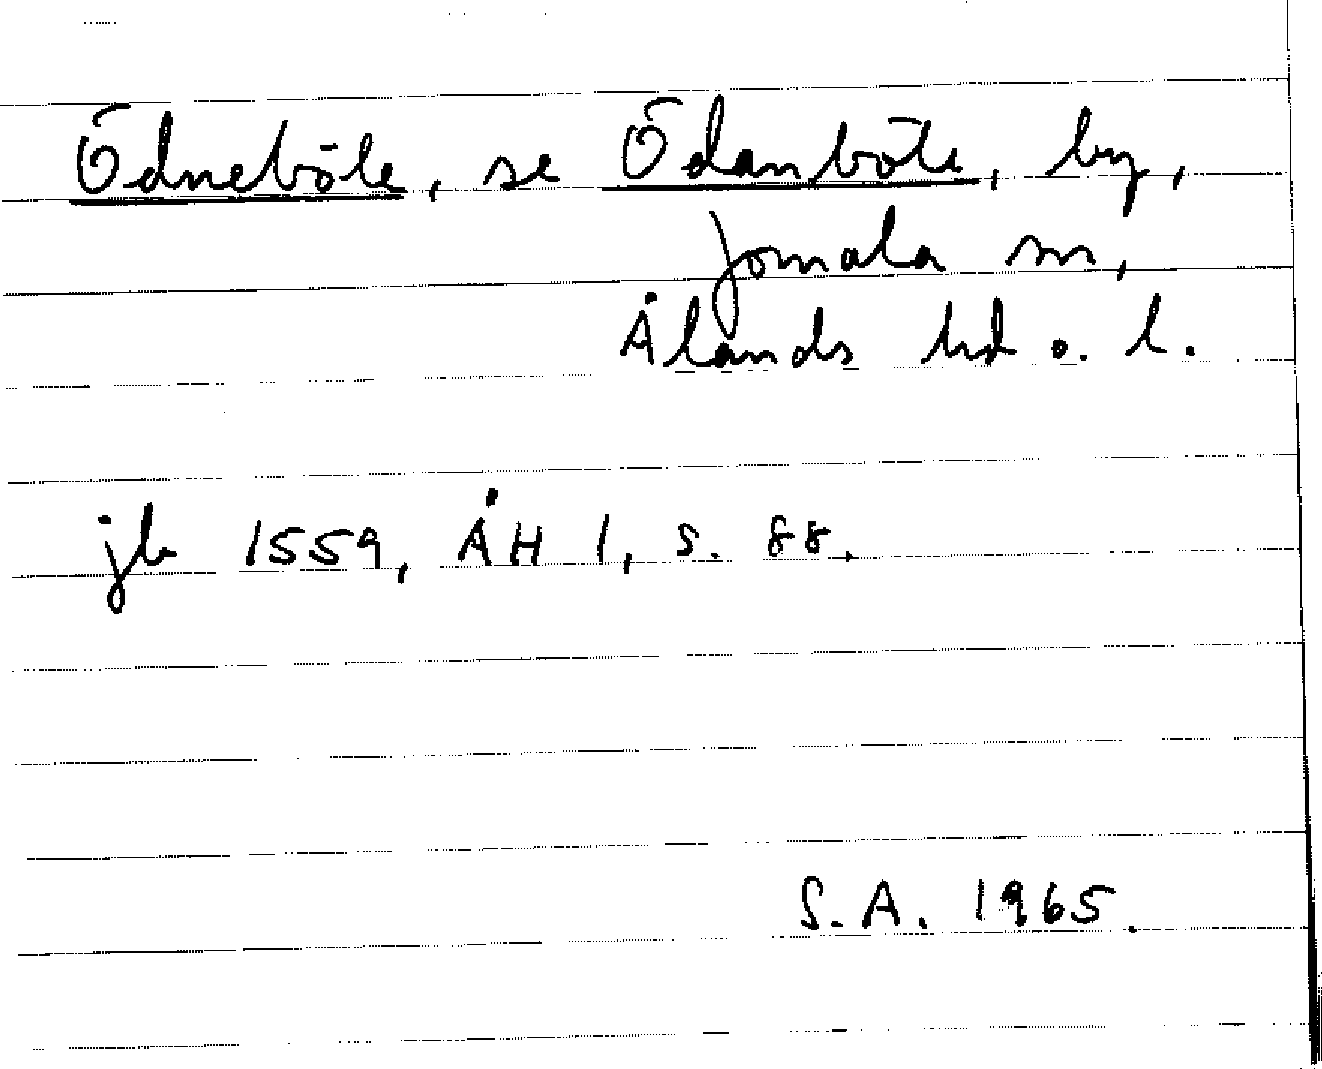 Ödneböle, se Ödanböle, by,
Jomala sn,
Ålands hd o. l.
jb 1559, ÅH 1, s. 88.
S.A. 1965.